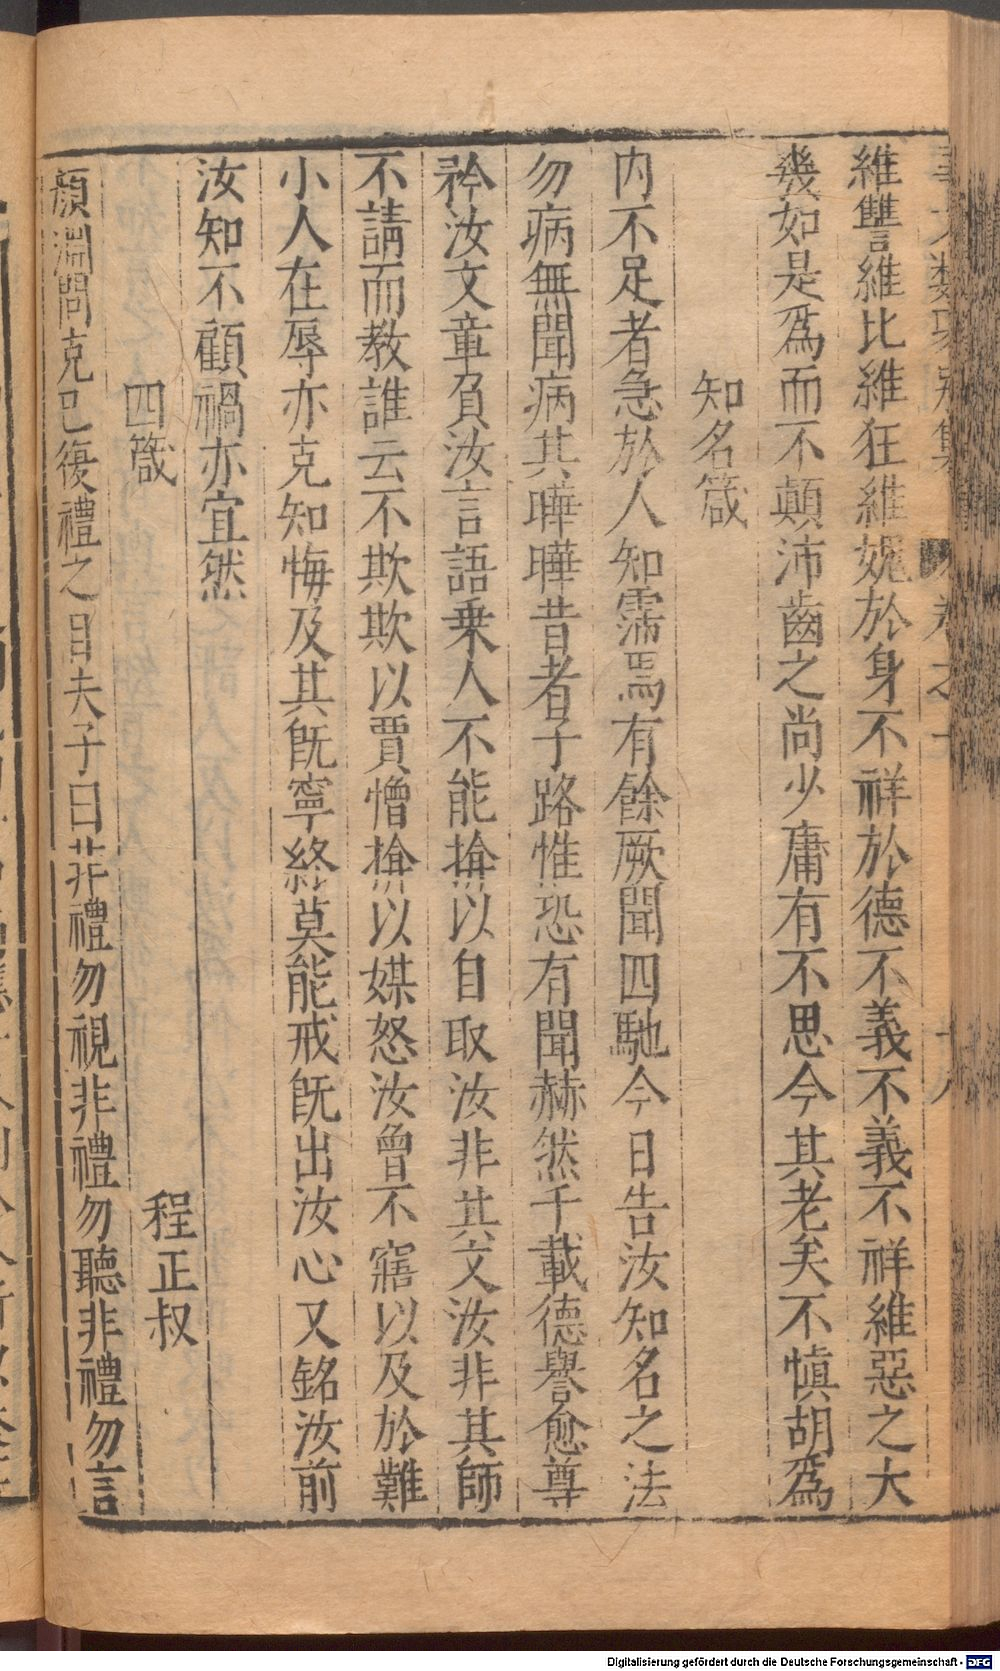 維讐維比維狂維娓於身不祥於德不義不義不祥維惡之大
幾如是爲而不顛沛齒之尚少庸有不思今其老矣不愼胡爲
知名箴
内不足者急於人知霈焉有餘厥聞四馳今日告汝知名之法
勿病無聞病其曄曄昔者子路惟恐有聞赫然千載德譽愈尊
矜汝文章負汝言語乗人不能揜以自取汝非其父汝非其師
不請而教誰云不欺欺以賈憎揜以媒怒汝曾不寤以及於難
小人在辱亦克知悔及其旣寧終莫能戒旣出汝心又銘汝前
汝知不顧禍亦宜然
四箴
程正叔
顔淵問克己復禮之目夫子曰非禮勿視非禮勿聽非禮勿言
Digitalisierung gefördert durch die Deutsche Forschungsgemeinschaft - DFG